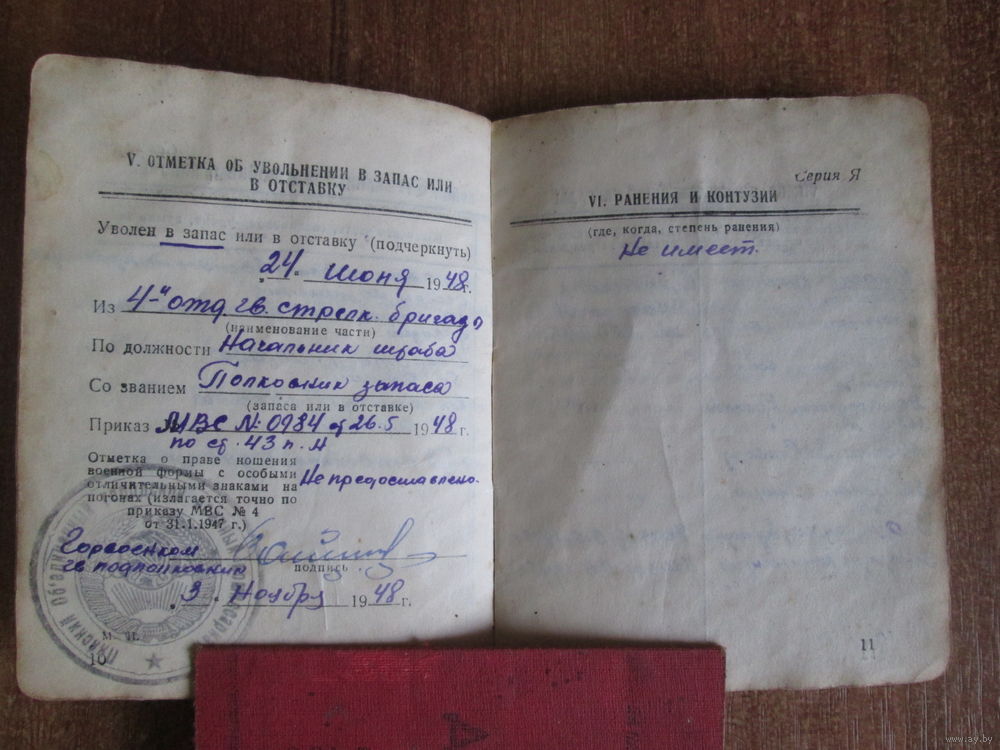 V. ОТМЕТКА ОБ УВОЛЬНЕНИИ В ЗАПАС ИЛИ
В ОТСТАВКУ
Уволен в запас или в отставку (подчеркнуть)
„24“ июня 1948г.
Из 4-й отд. гв. стрелк. бригады
(наименование части)
По должности Начальник штаба
Со званием Полковник запаса
(запаса или в отставке)
Приказ МВС № 0984 от 26.5 1948 г.
по ст. 43 п. А
Отметка о праве ношения
военной формы с особыми
отличительными знаками на
погонах (излагается точно по
приказу МВС № 4
от 31.1.1947 г.)
Не предоставлено.
Горвоенком
гв подполковник
подпись
„3“ Ноября 1948г.
М. П.
10
Серия Я
VI. РАНЕНИЯ И КОНТУЗИИ
(где, когда, степень ранения)
Не имеет.
11
www.ay.by